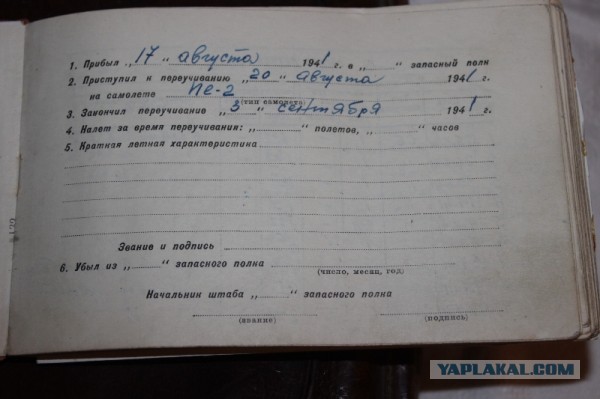 1. Прибыл „17“ августа 1941 г. в „......“ запасный полк
2. Приступил к переучиванию „20“ августа 1941 г.
на самолете Пе-2
(тип самолета)
3. Закончил переучивание „3“ сентября 1941 г.
4. Налет за время переучивания: „......“ полетов, „......“ часов
5. Краткая летная характеристика
Звание и подпись
6. Убыл из „......“ запасного полка
(число, месяц, год)
Начальник штаба „......“ запасного полка
(звание) (подпись)
YAPLAKAL.COM